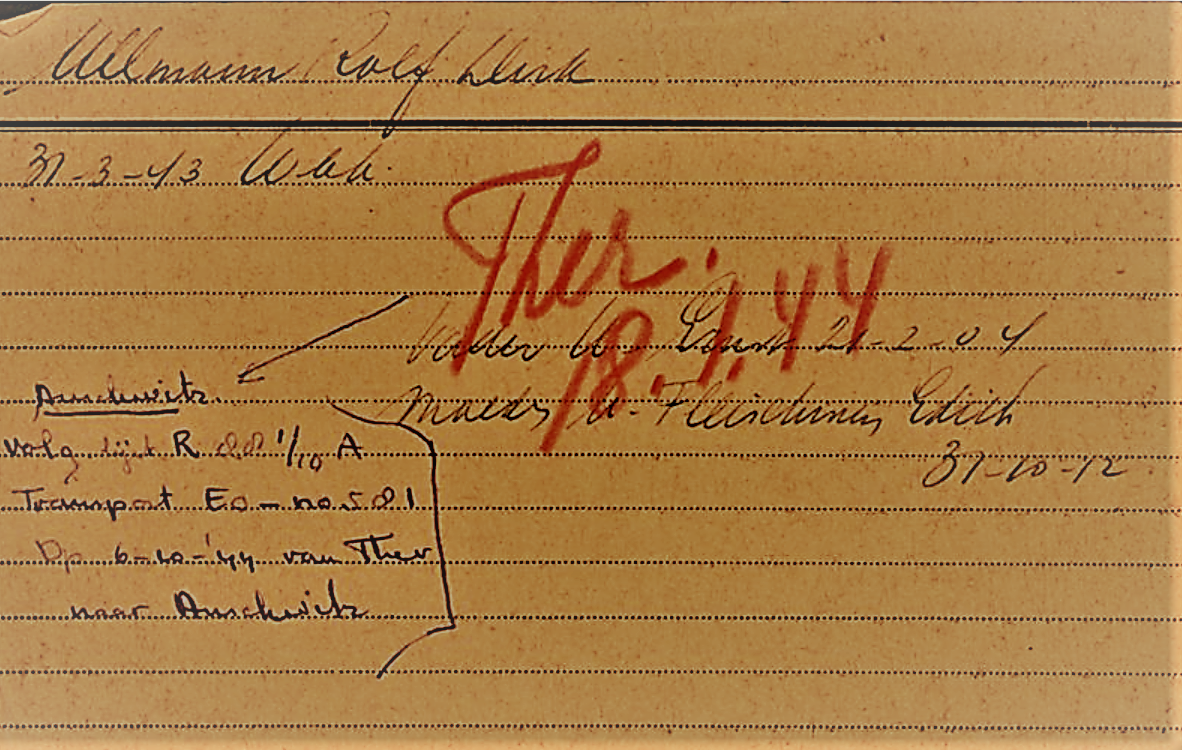 Ullmann Rolf Dirk
31-3-43 Wbk.
Ther.
18.1.44
Vader U. Ernst 21-2-04
Moeder U-Fleischner Edith
31-10-12
Auschwitz.
volg. lijst R 1/10 A
Transport Eo - no. 581
Op 6-10-'44 van Ther
naar Auschwitz